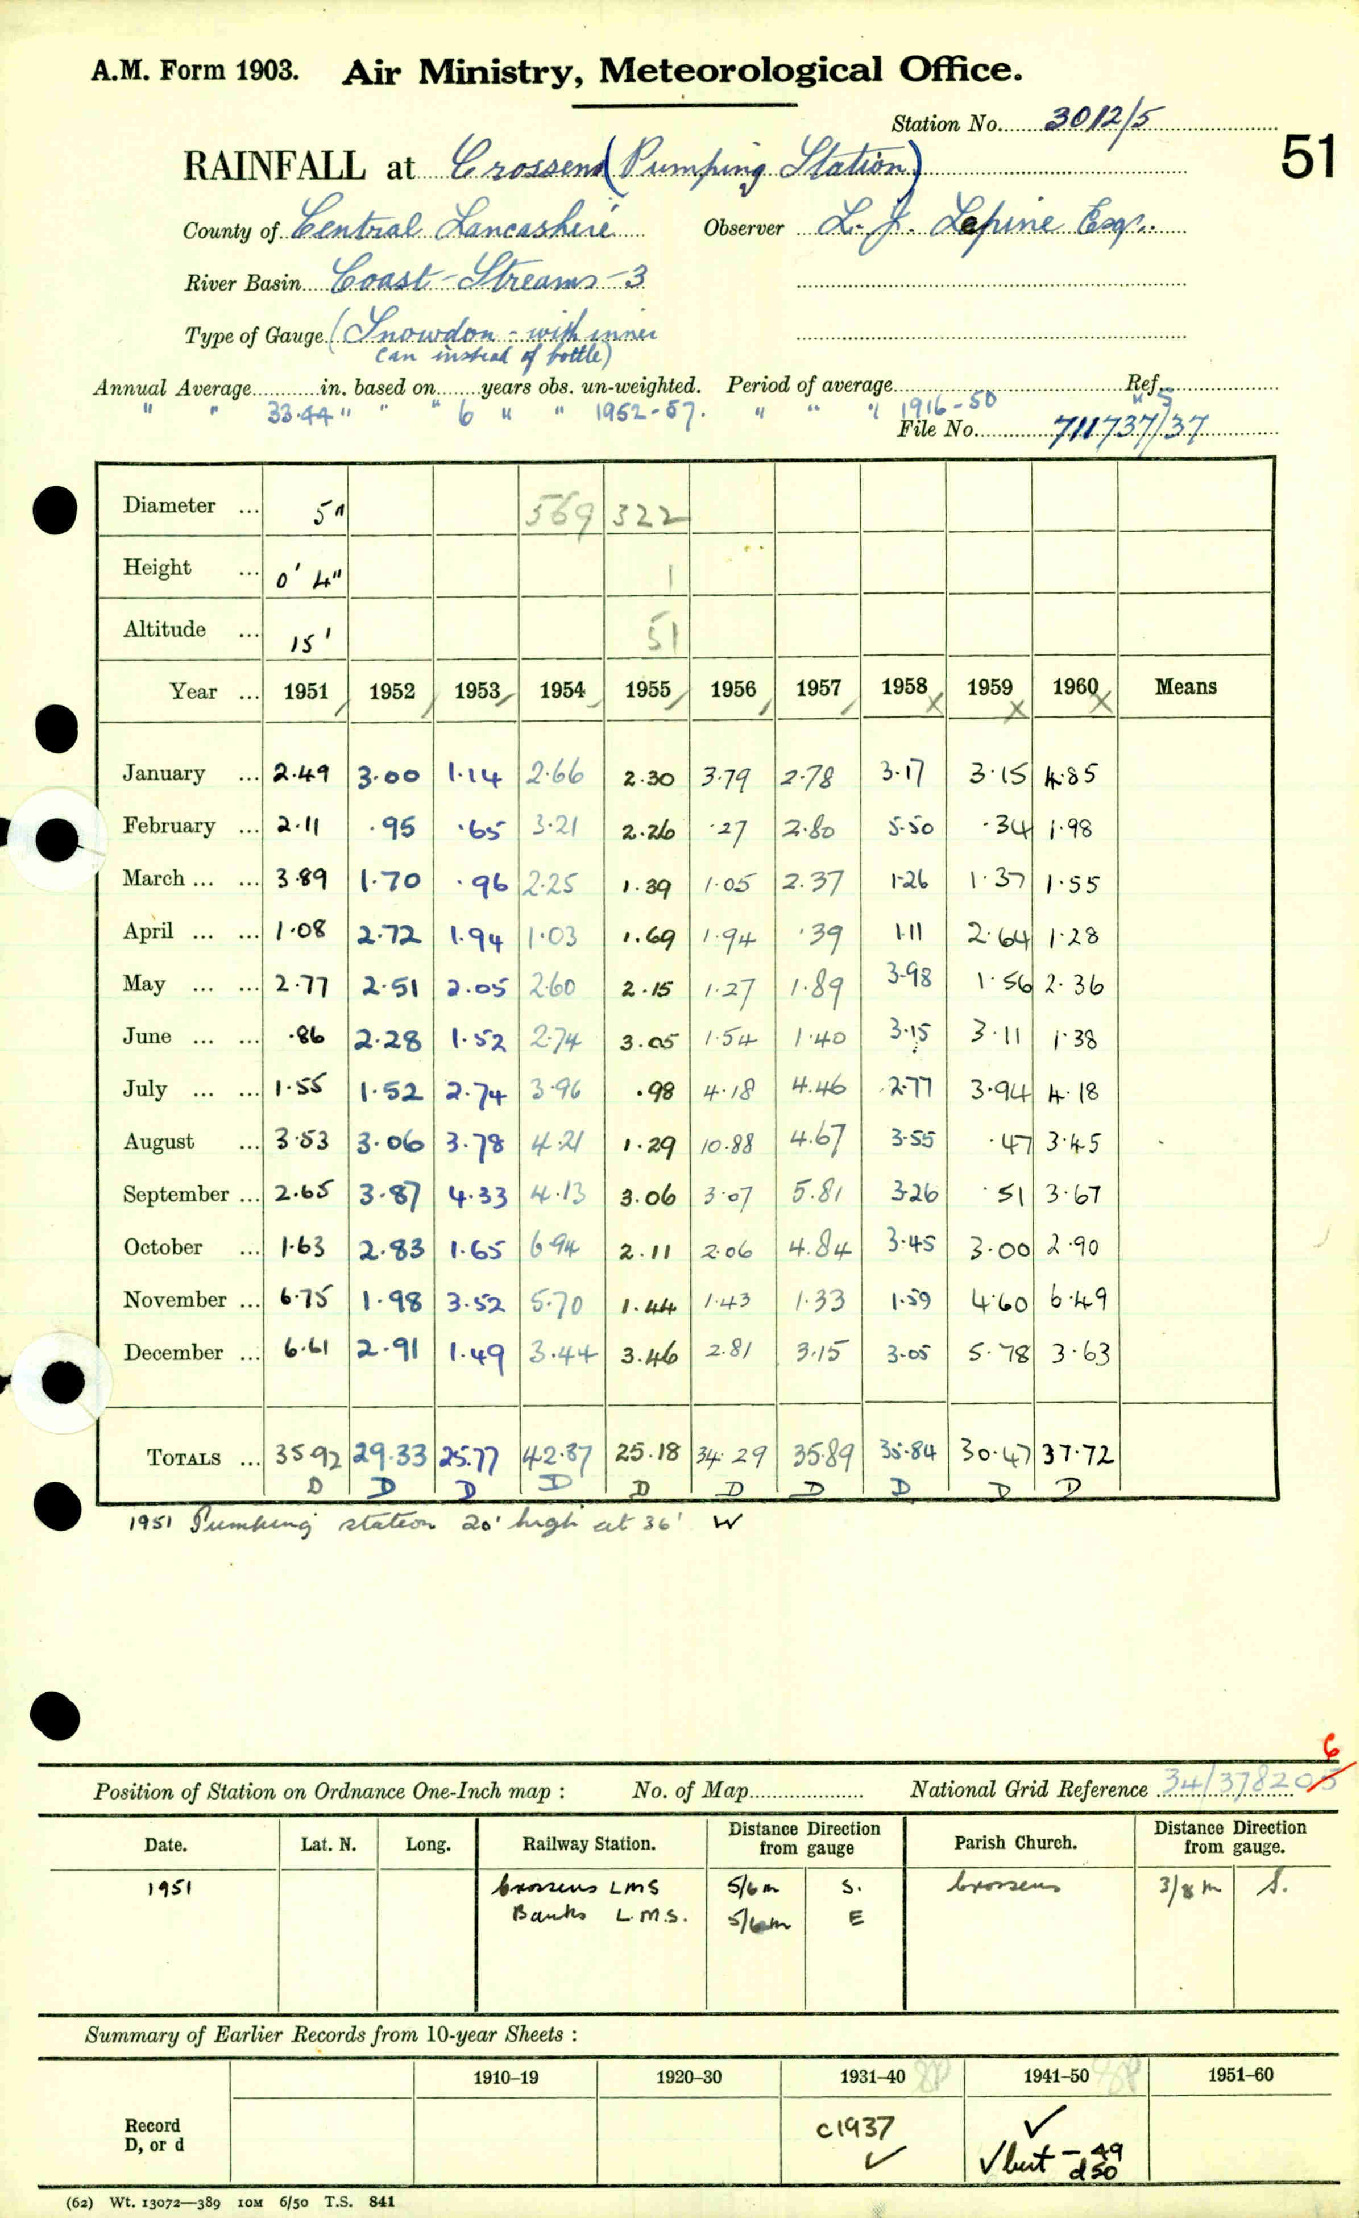 A.M. Form 1903. Air Ministry, Meteorological Office.
Station No. 3012/5
51
RAINFALL at Crossens (Pumping Station)
County of Central Lancashire Observer L. J. Lepine Esq.
River Basin Coast-Streams-3
Type of Gauge (Snowdon - with inner
can instead of bottle)
Annual Average............in. based on........years obs. un-weighted. Period of average............ Ref.
" " 33.44 " " " 6 " " 1952-57. " " " 1916-50 " 5
File No. 711737/37
Diameter ... 5" 569 322
Height ... 0' 4" 1
Altitude ... 15' 51
Year ... 1951 1952 1953 1954 1955 1956 1957 1958 1959 1960 Means
January ... 2.49 3.00 1.14 2.66 2.30 3.79 2.78 3.17 3.15 4.85
February ... 2.11 .95 .65 3.21 2.26 .27 2.80 5.50 .34 1.98
March ... ... 3.89 1.70 .96 2.25 1.39 1.05 2.37 1.26 1.37 1.55
April ... ... 1.08 2.72 1.94 1.03 1.69 1.94 .39 1.11 2.64 1.28
May ... ... 2.77 2.51 2.05 2.60 2.15 1.27 1.89 3.98 1.56 2.36
June ... ... .86 2.28 1.52 2.74 3.05 1.54 1.40 3.15 3.11 1.38
July ... ... 1.55 1.52 2.74 3.96 .98 4.18 4.46 2.77 3.94 4.18
August ... 3.53 3.06 3.78 4.21 1.29 10.88 4.67 3.55 .47 3.45
September ... 2.65 3.87 4.33 4.13 3.06 3.07 5.81 3.26 .51 3.67
October ... 1.63 2.83 1.65 6.94 2.11 2.06 4.84 3.45 3.00 2.90
November ... 6.75 1.98 3.52 5.70 1.44 1.43 1.33 1.59 4.60 6.49
December ... 6.61 2.91 1.49 3.44 3.46 2.81 3.15 3.05 5.78 3.63
TOTALS ... 35.92 29.33 25.77 42.87 25.18 34.29 35.89 35.84 30.47 37.72
D D D D D D D D D D
1951 Pumping station 20' high at 36' W
6
Position of Station on Ordnance One-Inch map : No. of Map.................... National Grid Reference 34/378205
Date. Lat. N. Long. Railway Station. Distance from Direction gauge Parish Church. Distance from Direction gauge.
1951 Crossens LMS 5/6 m S. Crossens 3/8 m S.
Banks L.M.S. 5/6 m E
Summary of Earlier Records from 10-year Sheets :
1910–19 1920–30 1931–40 1941–50 1951–60
Record
D, or d
c1937 ✓
✓ ✓ but - 49
d50
(62) Wt. 13072—389 10M 6/50 T.S. 841